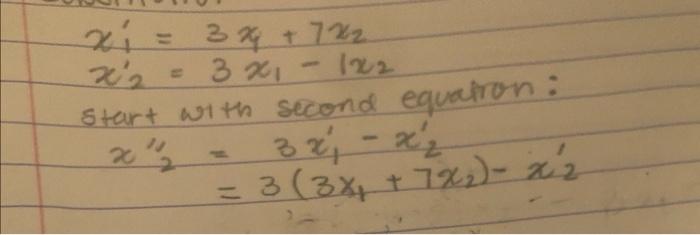 x₁' = 3x₁ + 7x₂
x₂' = 3x₁ - 1x₂
Start with second equation:
x₂'' = 3x₁' - x₂'
= 3(3x₁ + 7x₂) - x₂'